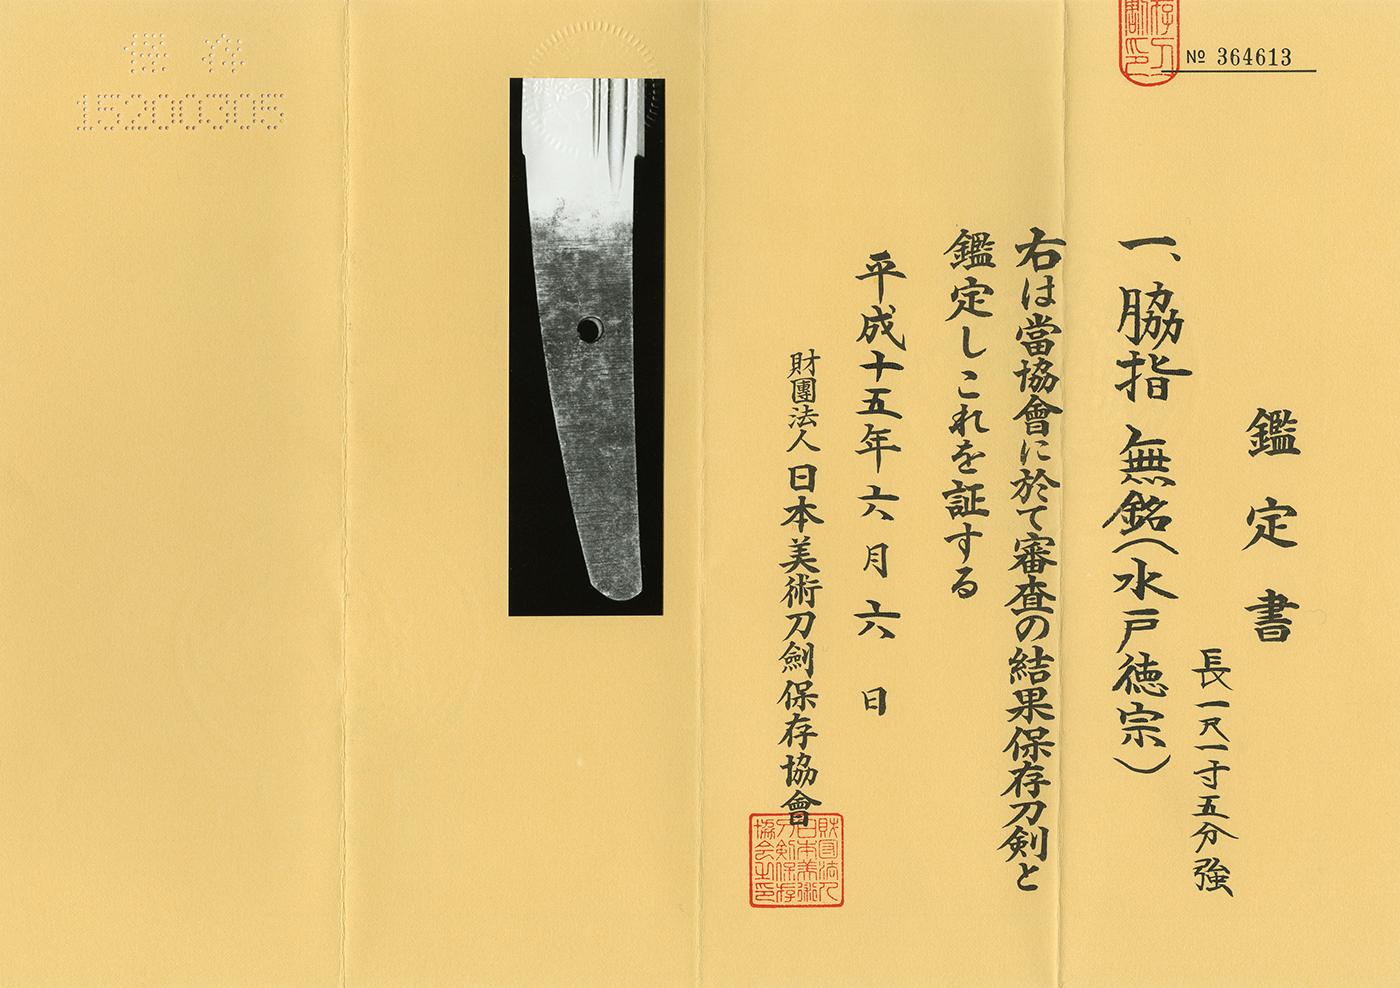 № 364613
鑑定書
長一尺一寸五分強
一、脇指 無銘(水戸徳宗)
右は當協會に於て審査の結果保存刀剣と
鑑定しこれを証する
平成十五年六月六日
財團法人日本美術刀劍保存協會
財団法人
日本美術
刀剣保存
協会之印
保存
15200305